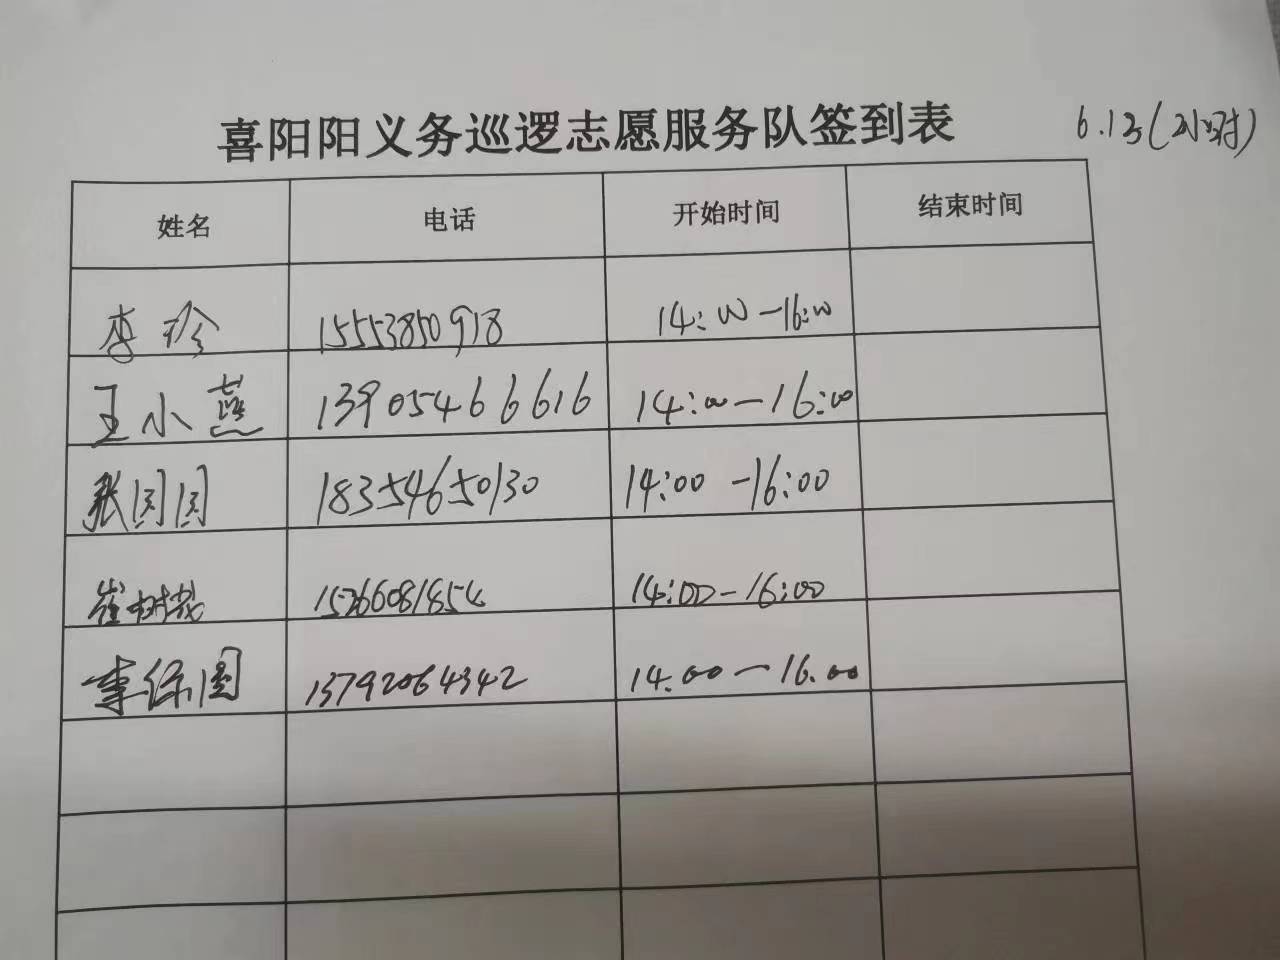 喜阳阳义务巡逻志愿服务队签到表 6.13(2小时)
姓名 电话 开始时间 结束时间
李珍 15553850918 14:00-16:00
王小燕 13905466616 14:00-16:00
张圆圆 18354650130 14:00-16:00
崔树茂 15266081854 14:00-16:00
李保国 13792064342 14.00-16.00